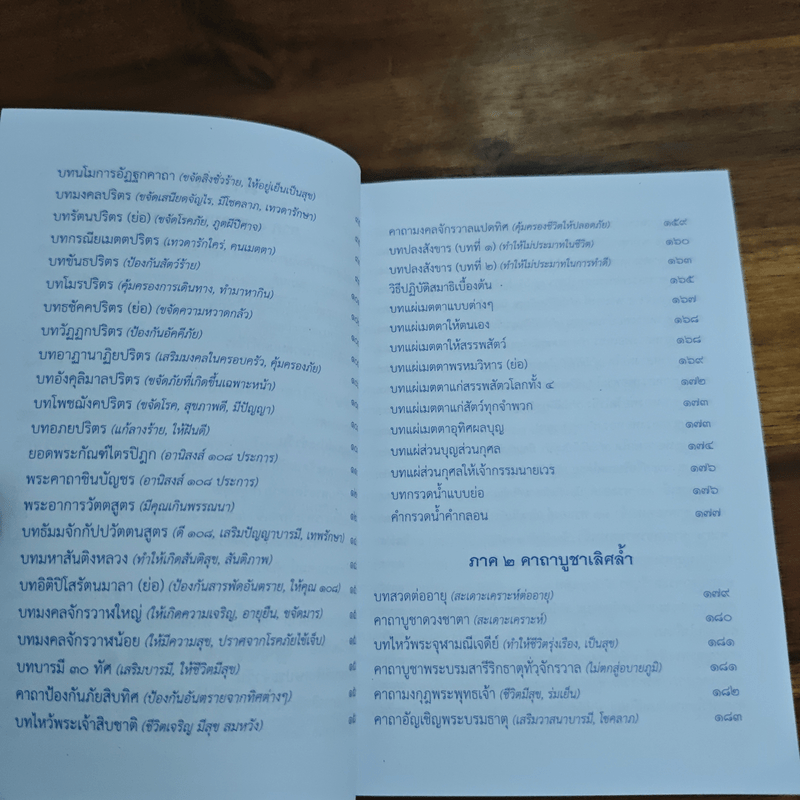 บทนโมการอัฏฐกคาถา (ขจัดสิ่งชั่วร้าย, ให้อยู่เย็นเป็นสุข)
บทมงคลปริตร (ขจัดเสนียดจัญไร, มีโชคลาภ, เทวดารักษา)
บทรัตนปริตร (ย่อ) (ขจัดโรคภัย, ภูตผีปีศาจ)
บทกรณียเมตตปริตร (เทวดารักใคร่, คนเมตตา)
บทขันธปริตร (ป้องกันสัตว์ร้าย)
บทโมรปริตร (คุ้มครองการเดินทาง, ทำมาหากิน)
บทธชัคคปริตร (ย่อ) (ขจัดความหวาดกลัว)
บทวัฏฏกปริตร (ป้องกันอัคคีภัย)
บทอาฏานาฏิยปริตร (เสริมมงคลในครอบครัว, คุ้มครองภัย)
บทอังคุลิมาลปริตร (ขจัดภัยที่เกิดขึ้นเฉพาะหน้า)
บทโพชฌังคปริตร (ขจัดโรค, สุขภาพดี, มีปัญญา)
บทอภยปริตร (แก้ลางร้าย, ให้ฝันดี)
ยอดพระกัณฑ์ไตรปิฎก (อานิสงส์ ๑๐๘ ประการ)
พระคาถาชินบัญชร (อานิสงส์ ๑๐๘ ประการ)
พระอาการวัตตสูตร (มีคุณเกินพรรณนา)
บทธัมมจักกัปปวัตตนสูตร (ดี ๑๐๘, เสริมปัญญาบารมี, เทพรักษา)
บทมหาสันติงหลวง (ทำให้เกิดสันติสุข, สันติภาพ)
บทอิติปิโสรัตนมาลา (ย่อ) (ป้องกันสารพัดอันตราย, ให้คุณ ๑๐๘)
บทมงคลจักรวาฬใหญ่ (ให้เกิดความเจริญ, อายุยืน, ขจัดมาร)
บทมงคลจักรวาฬน้อย (ให้มีความสุข, ปราศจากโรคภัยไข้เจ็บ)
บทบารมี ๓๐ ทัศ (เสริมบารมี, ให้ชีวิตมีสุข)
คาถาป้องกันภัยสิบทิศ (ป้องกันอันตรายจากทิศต่างๆ)
บทไหว้พระเจ้าสิบชาติ (ชีวิตเจริญ มีสุข สมหวัง)
คาถามงคลจักรวาลแปดทิศ (คุ้มครองชีวิตให้ปลอดภัย) ๑๕๙
บทปลงสังขาร (บทที่ ๑) (ทำให้ไม่ประมาทในชีวิต) ๑๖๐
บทปลงสังขาร (บทที่ ๒) (ทำให้ไม่ประมาทในการทำดี) ๑๖๓
วิธีปฏิบัติสมาธิเบื้องต้น ๑๖๕
บทแผ่เมตตาแบบต่างๆ ๑๖๗
บทแผ่เมตตาให้ตนเอง ๑๖๘
บทแผ่เมตตาให้สรรพสัตว์ ๑๖๘
บทแผ่เมตตาพรหมวิหาร (ย่อ) ๑๖๙
บทแผ่เมตตาแก่สรรพสัตว์โลกทั้ง ๔ ๑๗๒
บทแผ่เมตตาแก่สัตว์ทุกจำพวก ๑๗๓
บทแผ่เมตตาอุทิศผลบุญ ๑๗๓
บทแผ่ส่วนบุญส่วนกุศล ๑๗๔
บทแผ่ส่วนกุศลให้เจ้ากรรมนายเวร ๑๗๖
บทกรวดน้ำแบบย่อ ๑๗๖
คำกรวดน้ำคำกลอน ๑๗๗
ภาค ๒ คาถาบูชาเลิศล้ำ
บทสวดต่ออายุ (สะเดาะเคราะห์ต่ออายุ) ๑๗๙
คาถาบูชาดวงชาตา (สะเดาะเคราะห์) ๑๘๐
บทไหว้พระจุฬามณีเจดีย์ (ทำให้ชีวิตรุ่งเรือง, เป็นสุข) ๑๘๑
คาถาบูชาพระบรมสารีริกธาตุทั่วจักรวาล (ไม่ตกสู่อบายภูมิ) ๑๘๑
คาถามงกุฎพระพุทธเจ้า (ชีวิตมีสุข, ร่มเย็น) ๑๘๒
คาถาอัญเชิญพระบรมธาตุ (เสริมวาสนาบารมี, โชคลาภ) ๑๘๓